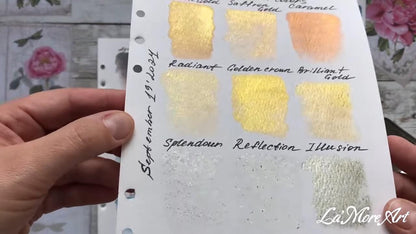 Gold Saffron Colors
Gold Caramel
Radiant Golden crown Brilliant
Gold
Splendour Reflection Illusion
September 19' 2021
LaMoreArt